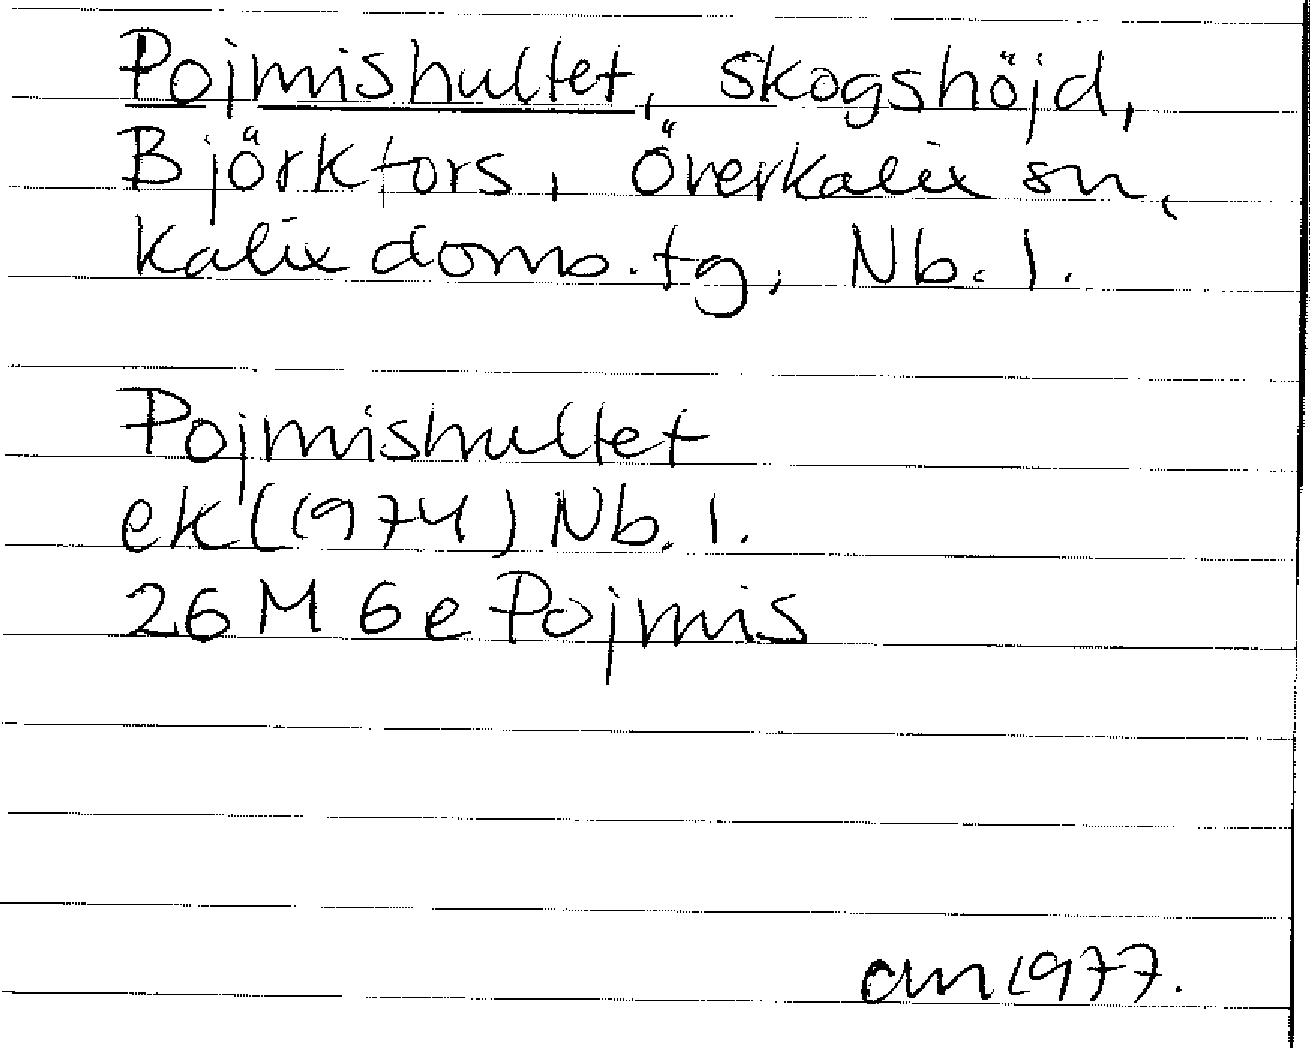 Pojmishultet, skogshöjd,
Björkfors, Överkalix sn,
Kalix doms.tg, Nb. l.
Pojmishultet
ek (1974) Nb. l.
26 M 6 e Pojmis
am 1977.